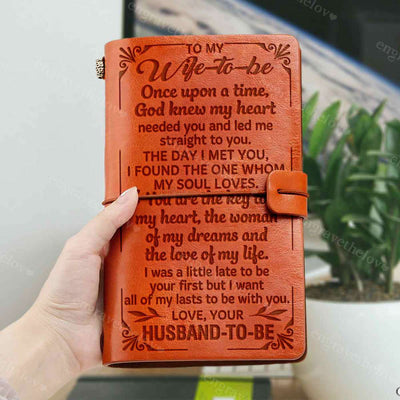 TO MY
Wife-to-be
Once upon a time,
God knew my heart
needed you and led me
straight to you.
THE DAY I MET YOU,
I FOUND THE ONE WHOM
MY SOUL LOVES.
You are the key to
my heart, the woman
of my dreams and
the love of my life.
I was a little late to be
your first but I want
all of my lasts to be with you.
LOVE, YOUR
HUSBAND-TO-BE
engravethelove